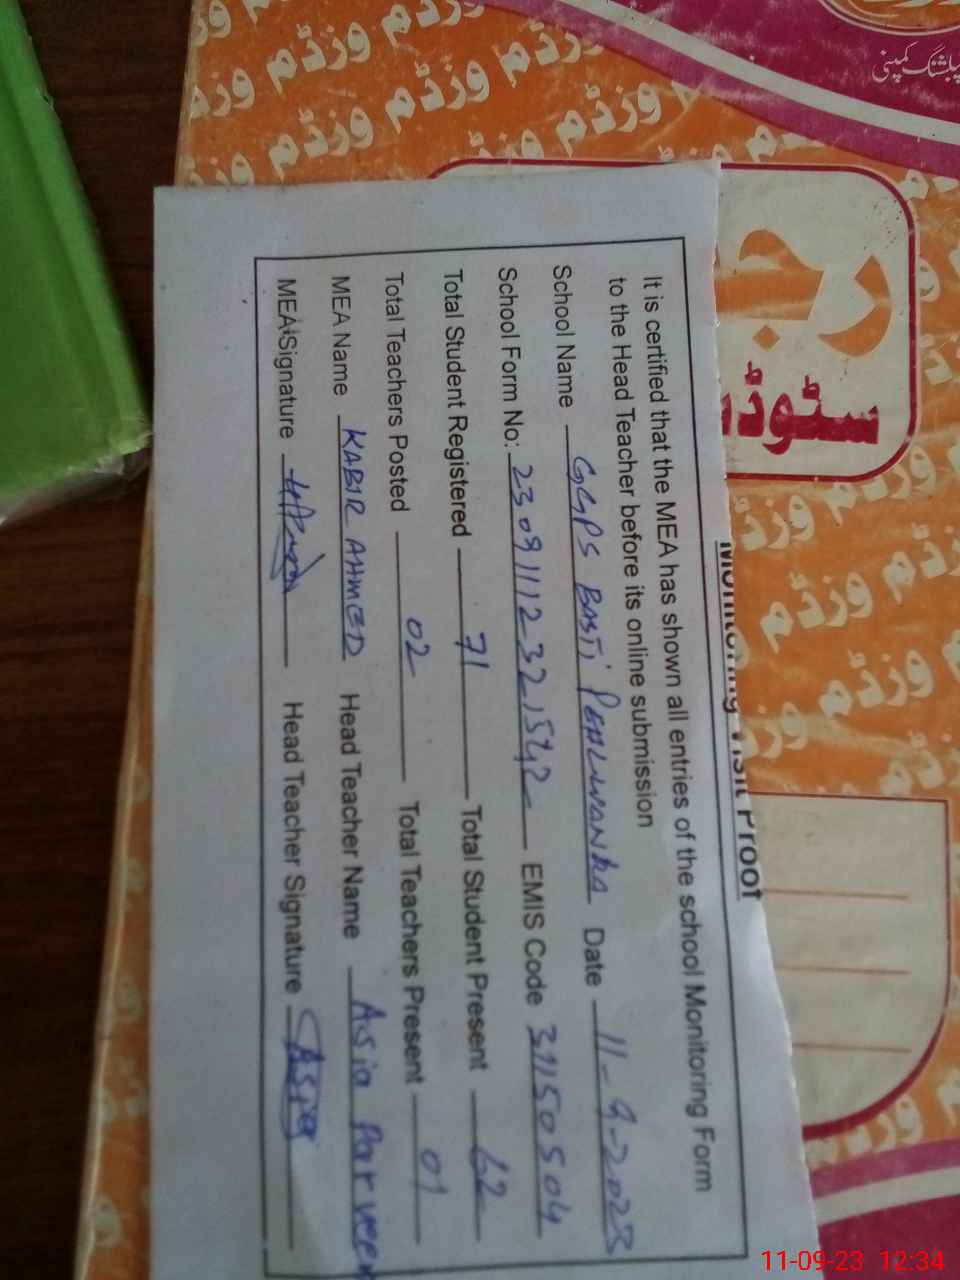 Monitoring Visit Proof
It is certified that the MEA has shown all entries of the school Monitoring Form
to the Head Teacher before its online submission
School Name GGPS BASTi PEHLWANKA Date 11-9-2023
School Form No: 2309111232 1542 EMIS Code 31150504
Total Student Registered 71 Total Student Present 62
Total Teachers Posted 02 Total Teachers Present 01
MEA Name KABIR AHMED Head Teacher Name Asia Parveen
MEA Signature Head Teacher Signature
پبلشنگ کمپنی
وزڈم
11-09-23 12:34